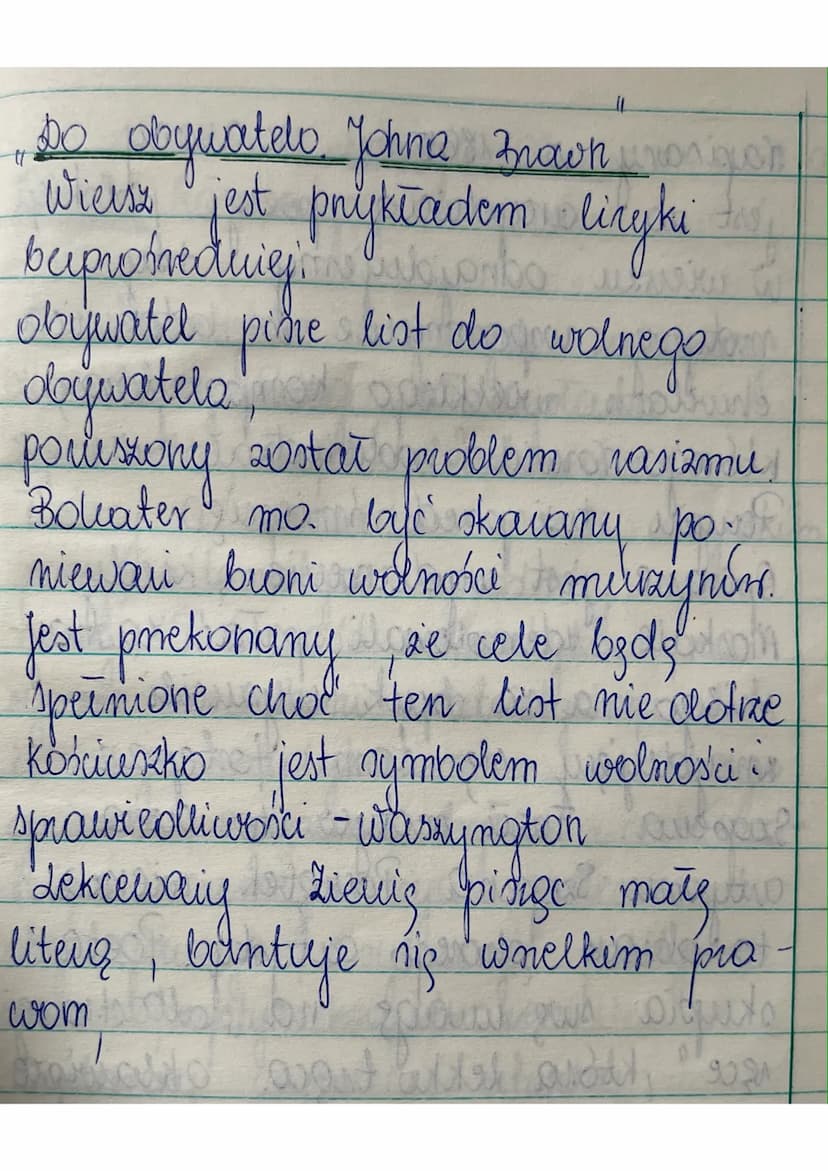 „Do obywatela Johna Brown"
Wiersz jest przykładem liryki
bezpośredniej.
obywatel pisze list do wolnego
obywatela,
poruszony został problem rasizmu.
Bohater ma być skazany po-
nieważ broni wolności murzynów.
Jest przekonany, że cele będą
spełnione choć ten list nie dotrze
Kościuszko jest symbolem wolności i
sprawiedliwości - Waszyngton
Lekceważy Ziemię pisząc małą
literą, buntuje się wszelkim pra-
wom,